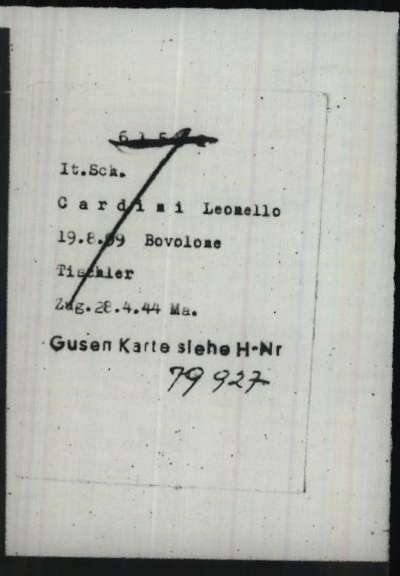 It.Sch.
Cardini Leonello
19.8.09 Bovolone
Tischler
Zug.28.4.44 Ma.
Gusen Karte siehe H-Nr
79 927